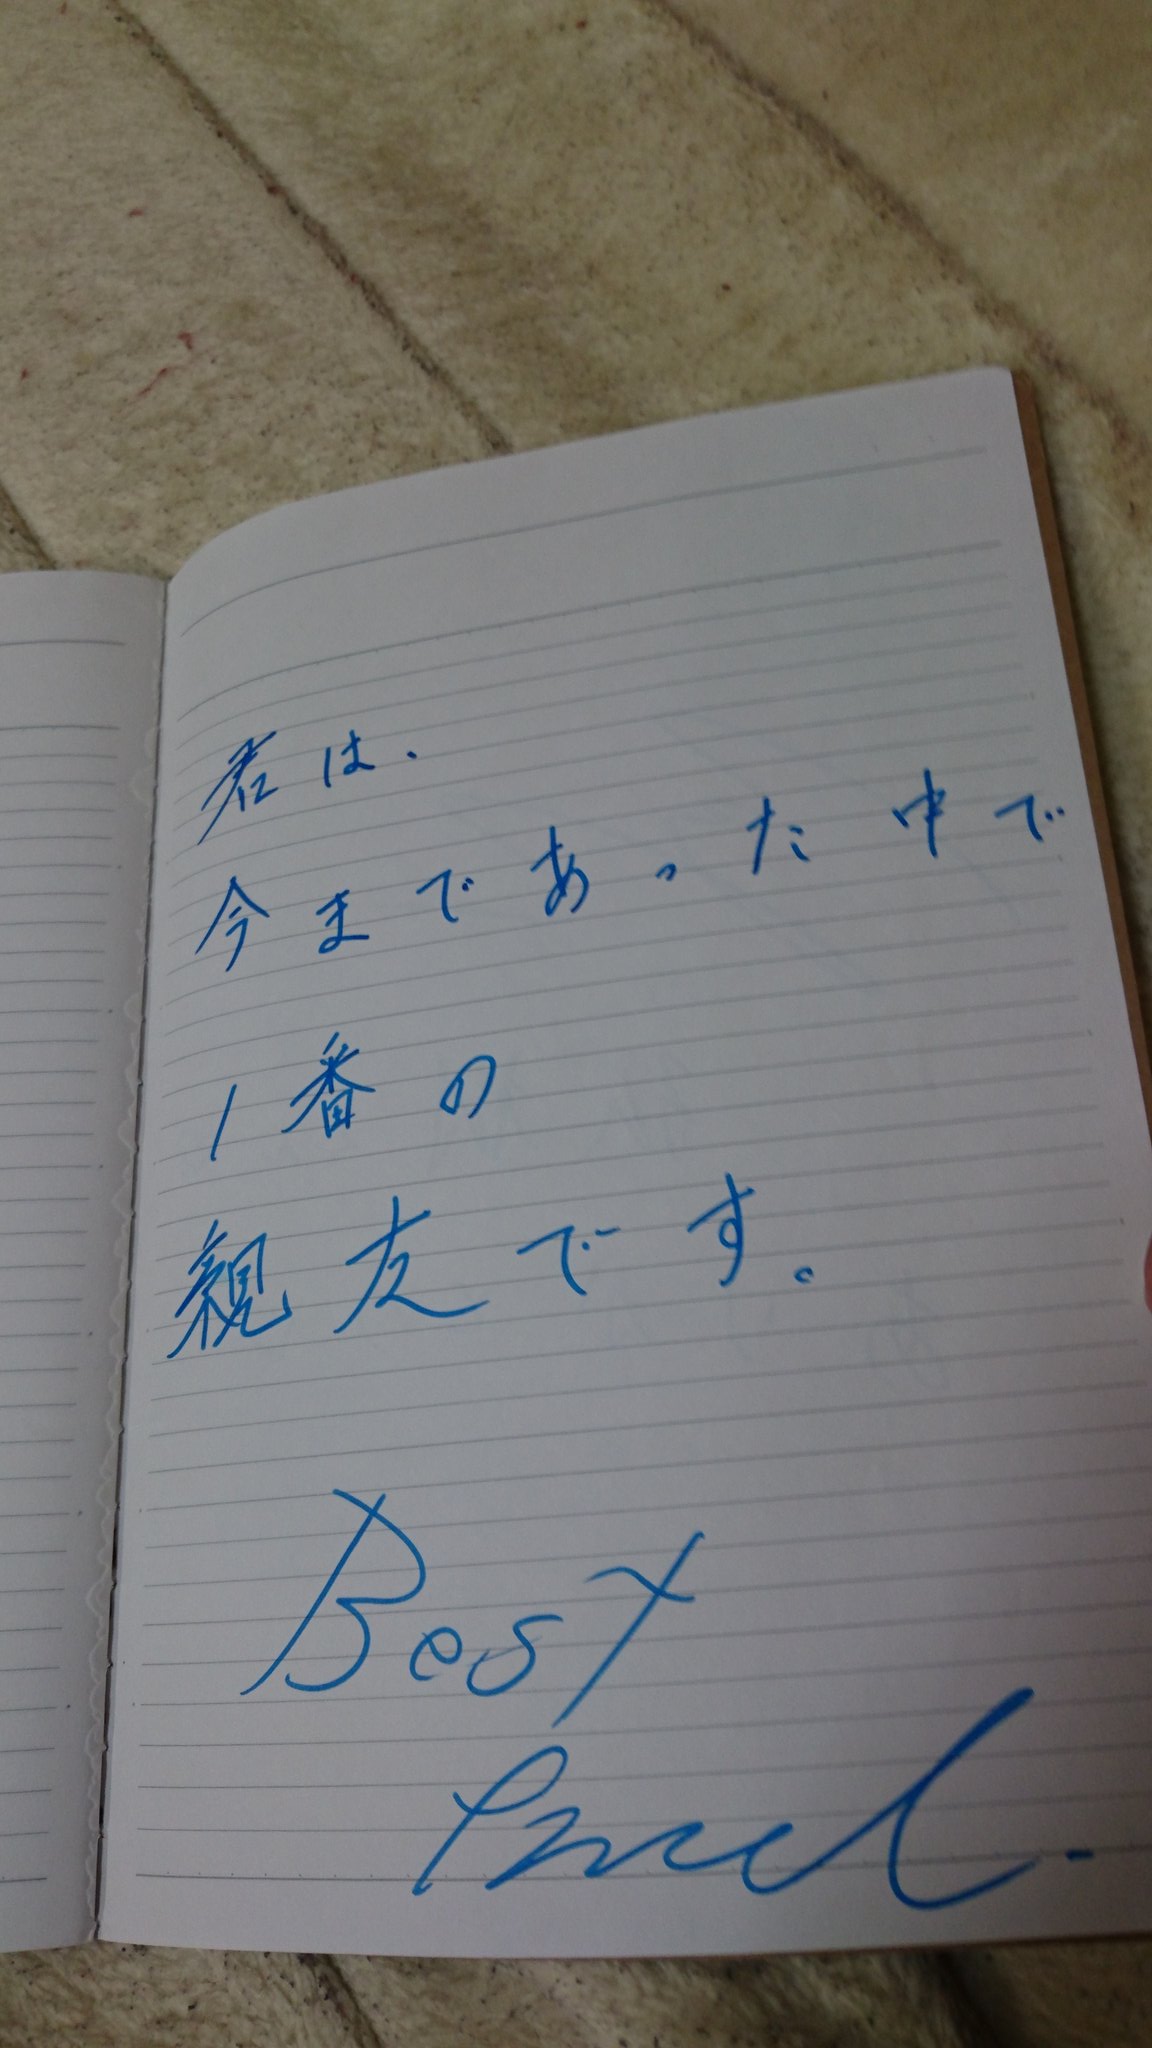 君は、
今まであった中で
1番の
親友です。
Best